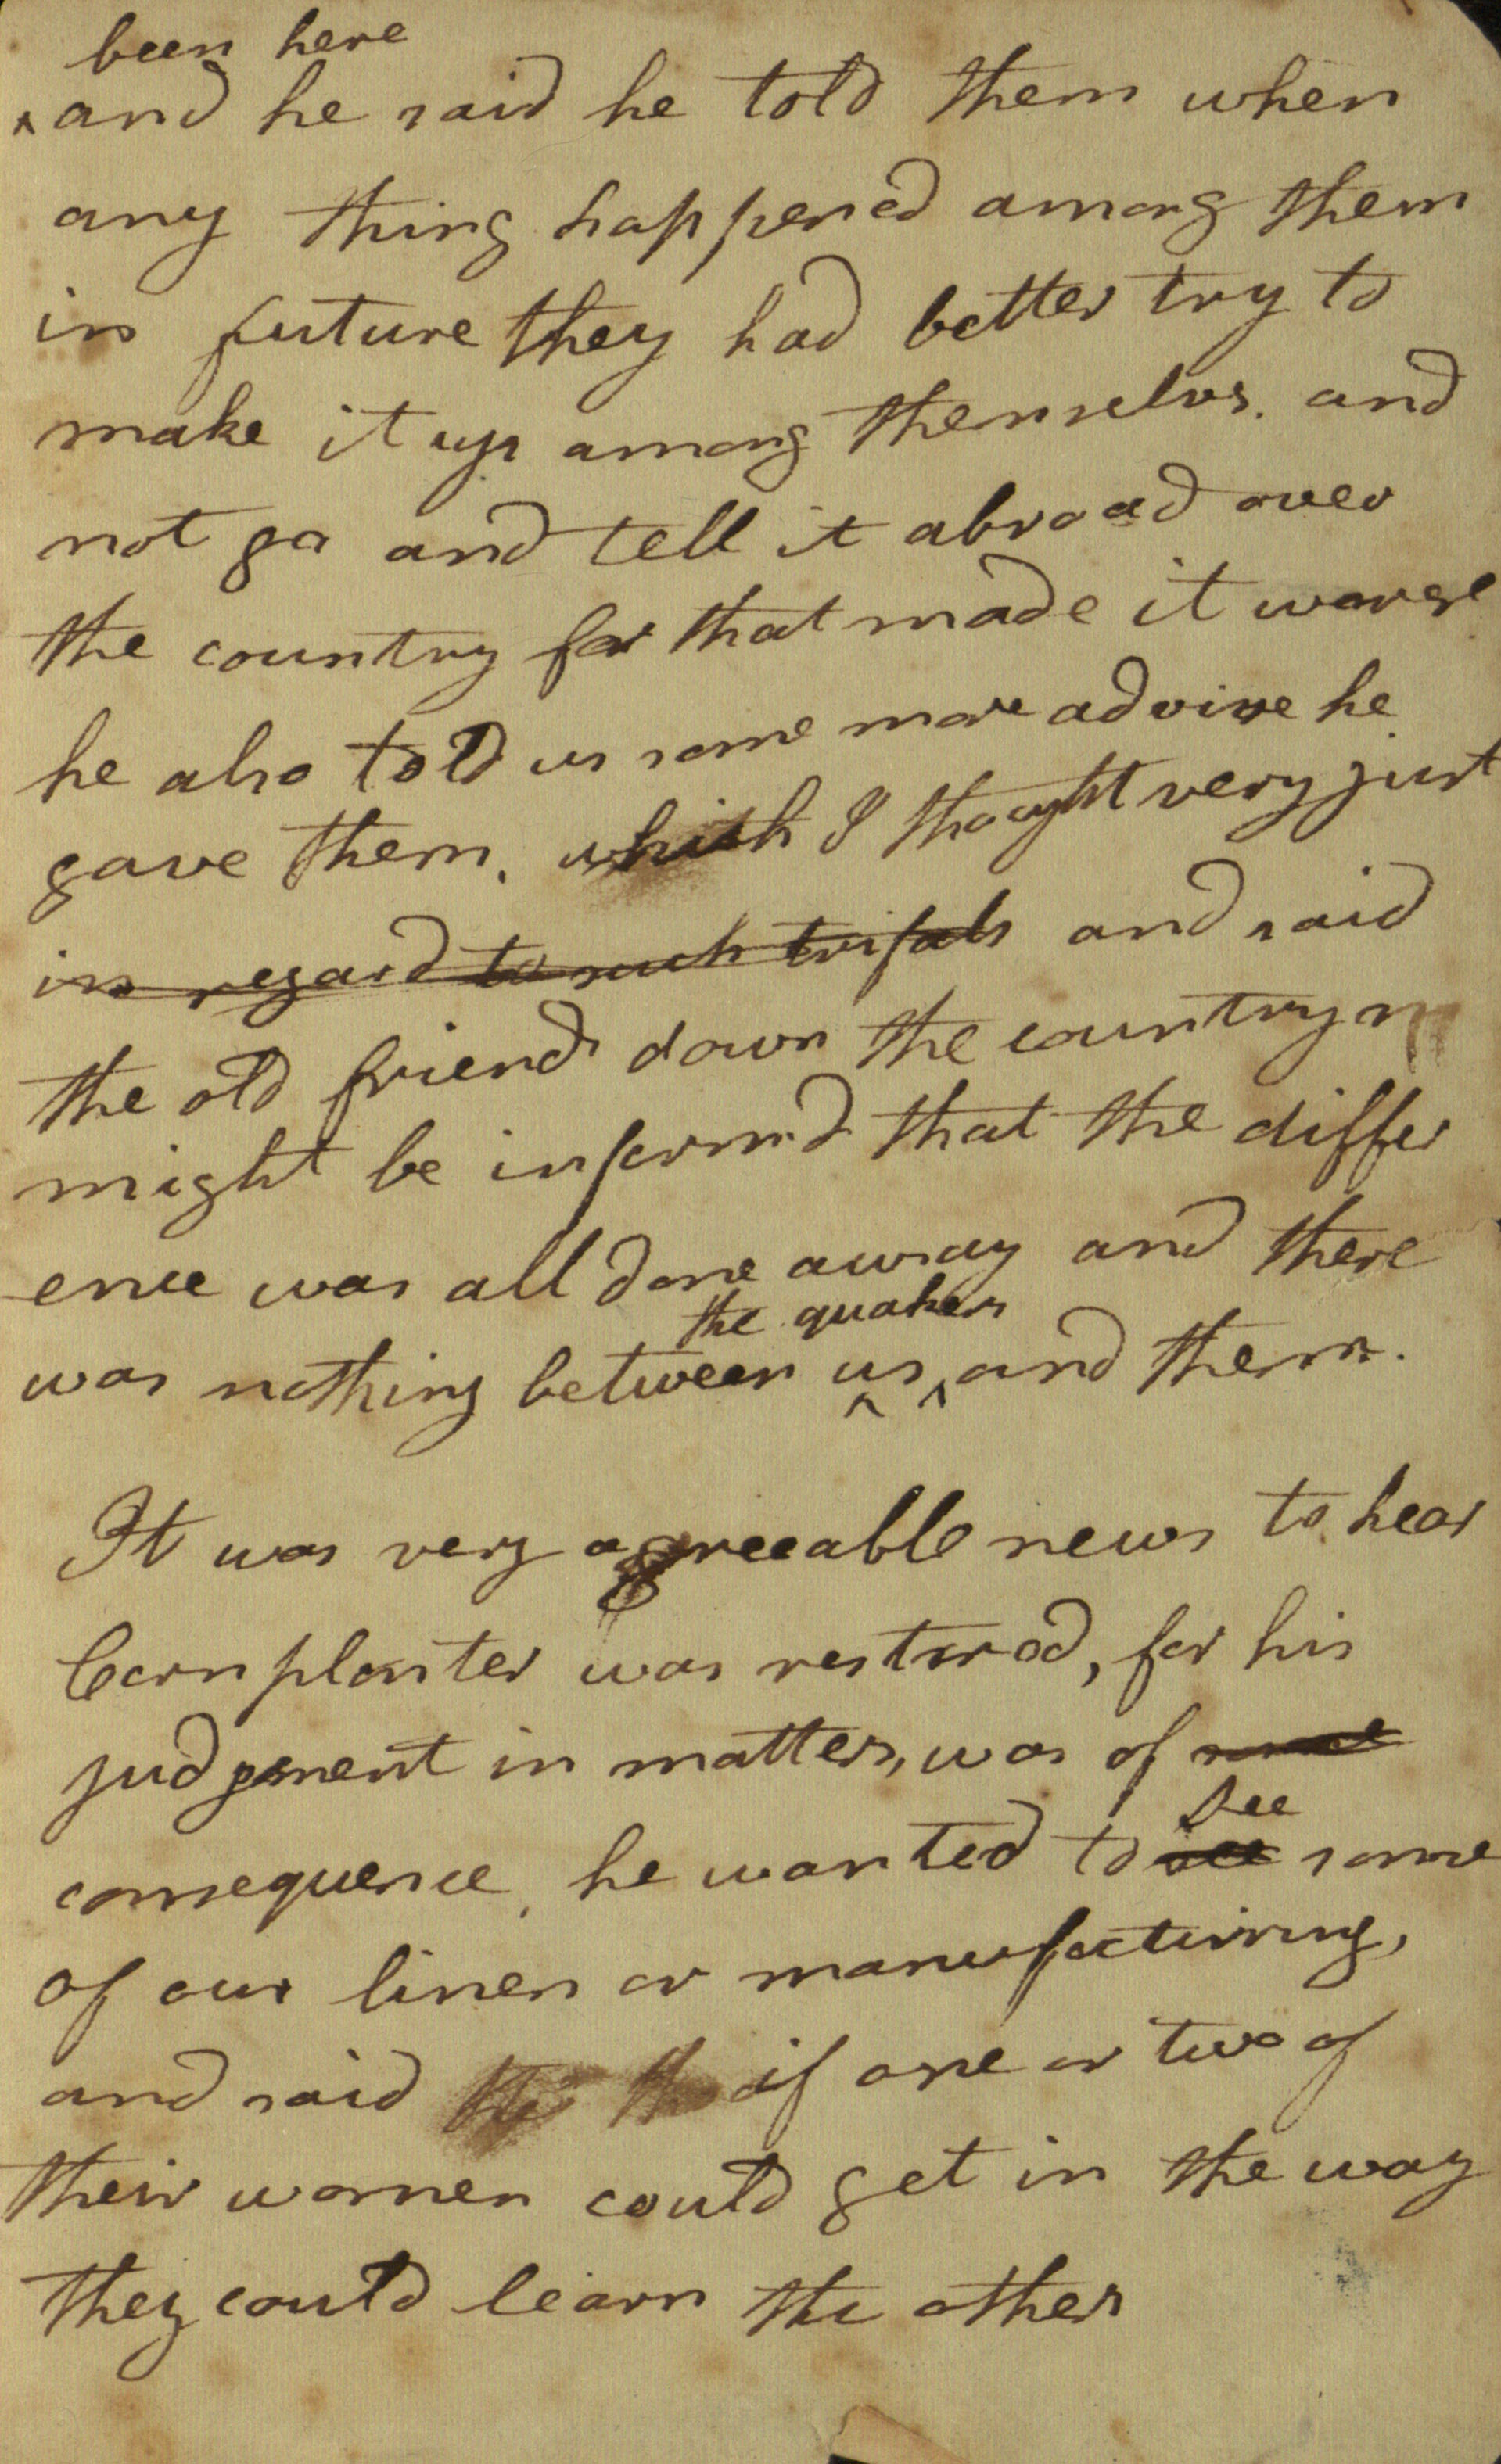 been here
^ and he said he told them when
any thing happened among them
in future they had better try to
make it up among themselvs. and
not go and tell it abroad over
the country for that made it worse
he also told us some more advise he
gave them. which I thought very just
in regard to such trifals and said
the old friends down the country
might be informd that the differ
ence was all done away and there
the quakers
was nothing between us ^ and them.
It was very agreeable news to hear
Cornplanter was restored, for his
judgment in matters, was of some
consequence, he wanted to see
See
some
of our linen or manufacturing,
and said the th if one or two of
their women could get in the way
they could learn the others